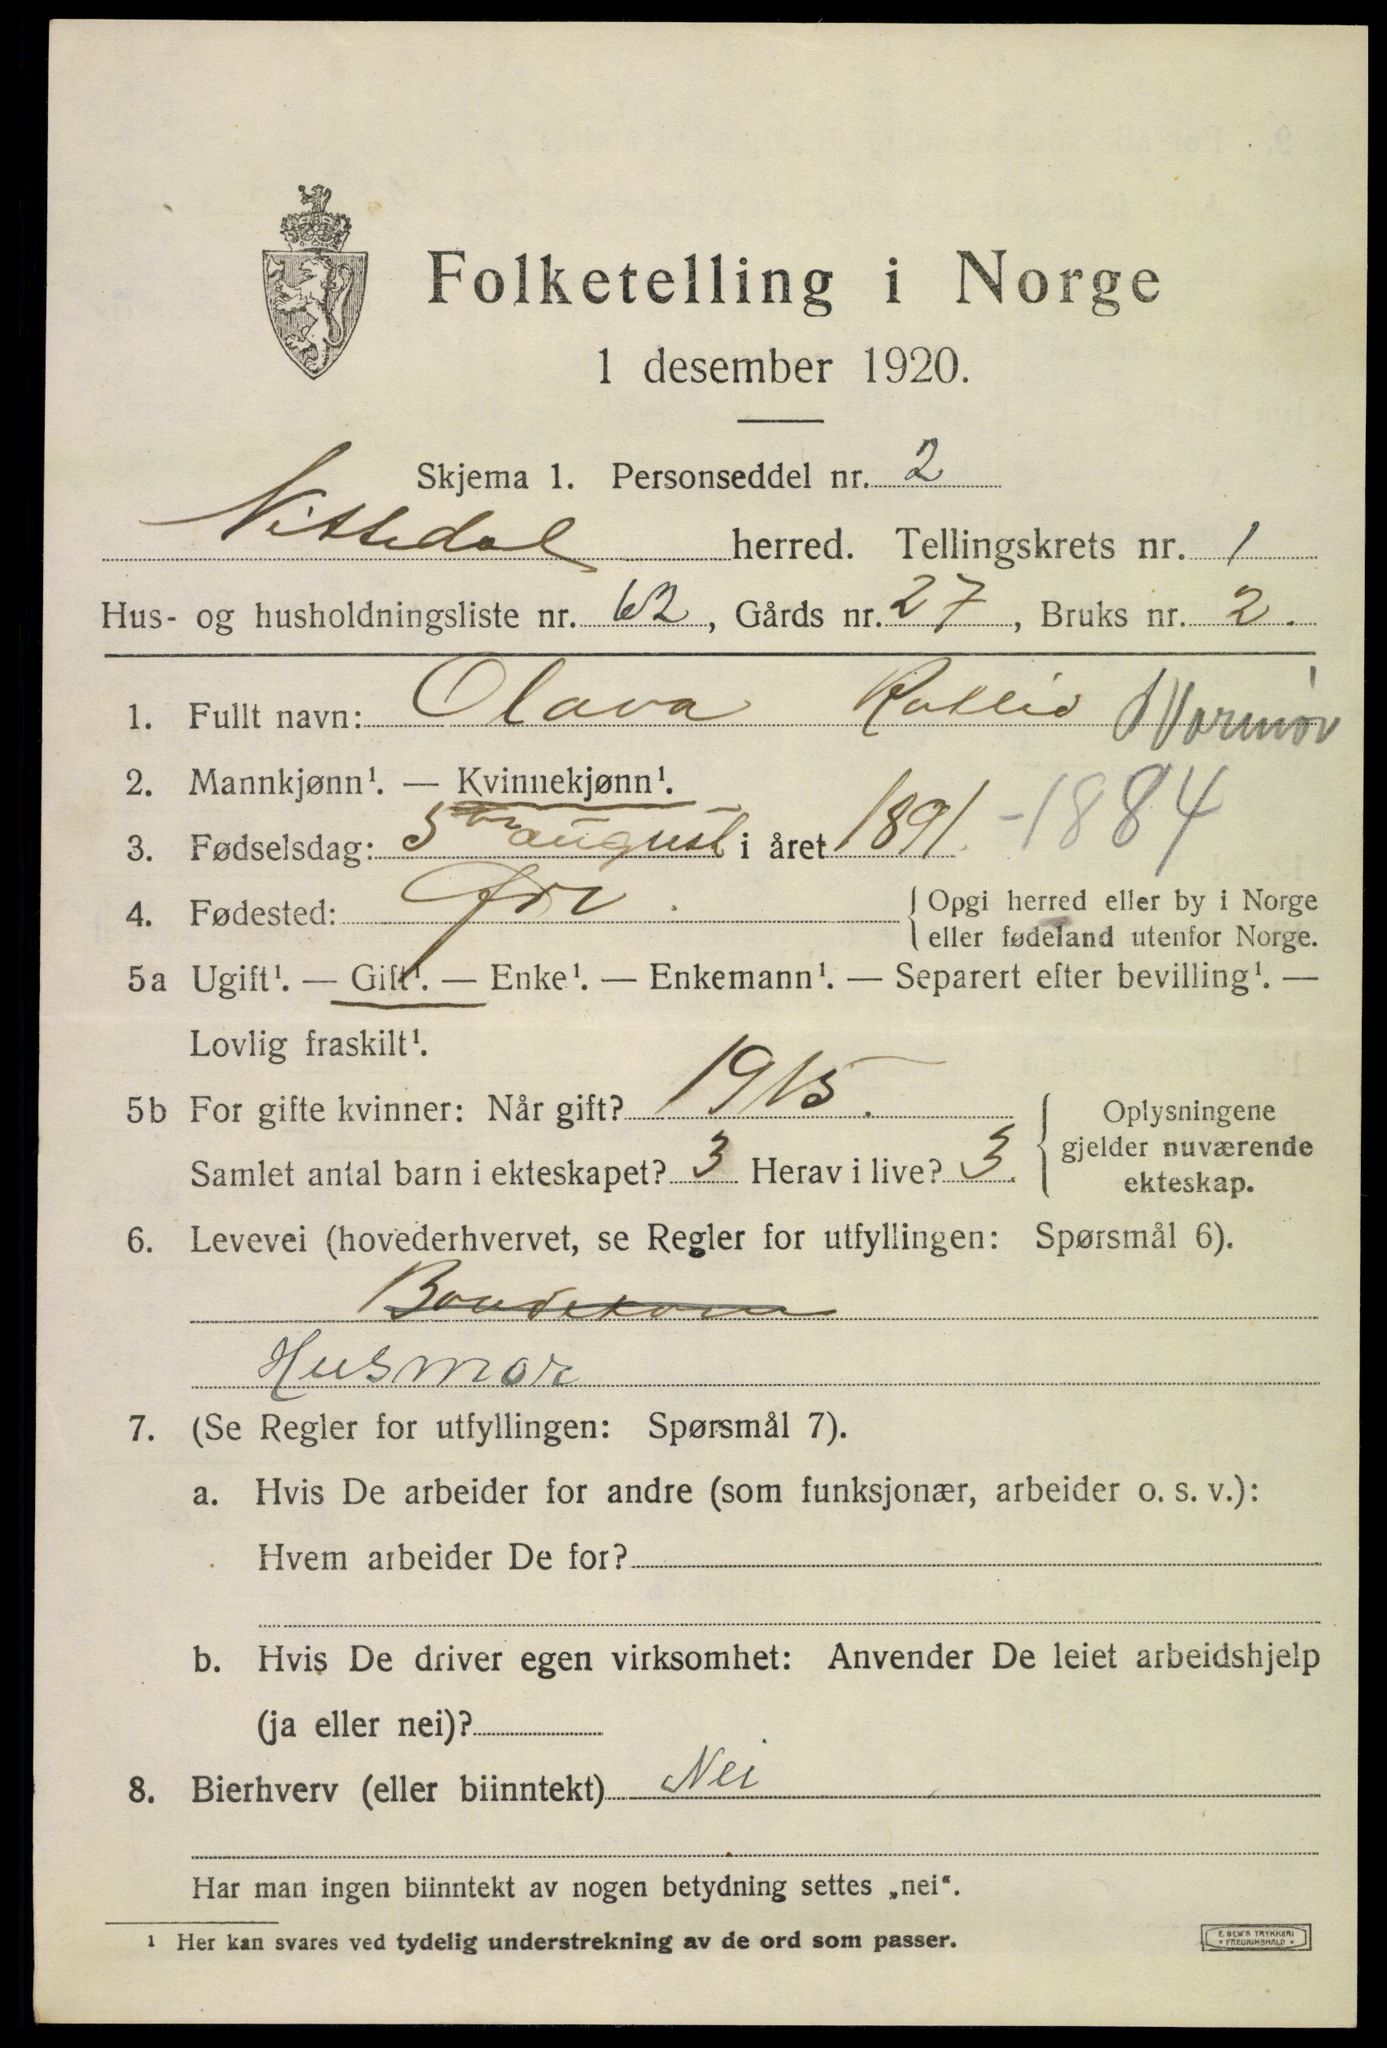 Folketelling i Norge
1 desember 1920.
Skjema 1. Personseddel nr. 2
Nittedal herred. Tellingskrets nr. 1
Hus- og husholdningsliste nr. 62, Gårds nr. 27, Bruks nr. 2.
1. Fullt navn: Olava
2. Mannkjønn¹. — Kvinnekjønn¹.
3. Fødselsdag: 5 august i året 1891. - 1884
4. Fødested: { Opgi herred eller by i Norge
eller fødeland utenfor Norge.
5a Ugift¹. — Gift¹. — Enke¹. — Enkemann¹. — Separert efter bevilling¹. —
Lovlig fraskilt¹.
5b For gifte kvinner: Når gift? 1915. { Oplysningene
gjelder nuværende
ekteskap.
Samlet antal barn i ekteskapet? 3 Herav i live? 3.
6. Levevei (hovederhvervet, se Regler for utfyllingen: Spørsmål 6).
Bondekone
Husmor
7. (Se Regler for utfyllingen: Spørsmål 7).
a. Hvis De arbeider for andre (som funksjonær, arbeider o. s. v.):
Hvem arbeider De for?
b. Hvis De driver egen virksomhet: Anvender De leiet arbeidshjelp
(ja eller nei)?
8. Bierhverv (eller biinntekt) Nei
Har man ingen biinntekt av nogen betydning settes „nei“.
¹ Her kan svares ved tydelig understrekning av de ord som passer.
E. SEM'S TRYKKERI
* FREDRIKSHALD *